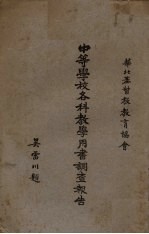 華北基督教教育協會
中等學校各科教學用書調查報告
吳雷川題